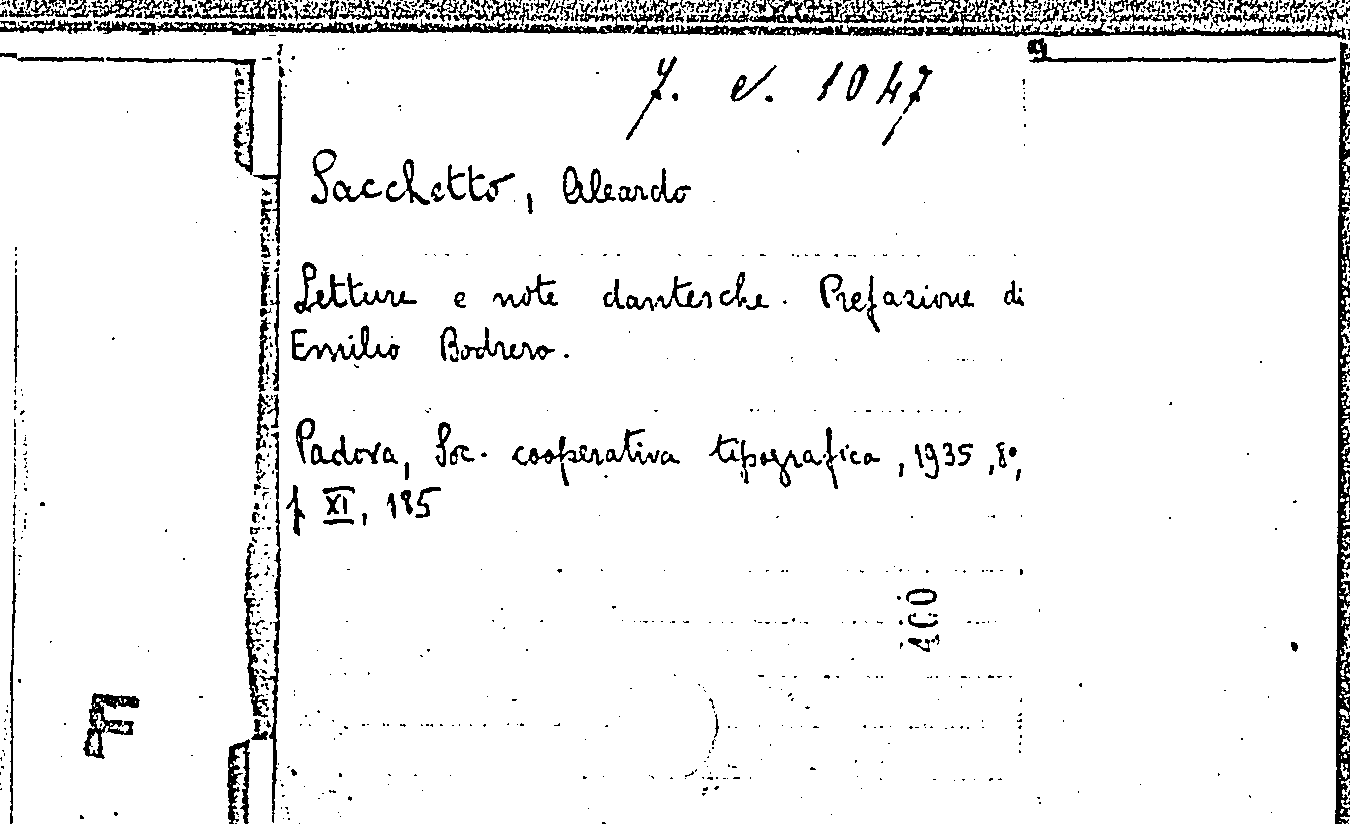 7. v. 1047
Sacchetto, Aleardo
Letture e note dantesche. Prefazione di
Emilio Bodrero.
Padova, Soc. cooperativa tipografica, 1935, 8°,
p XI, 185
400
F